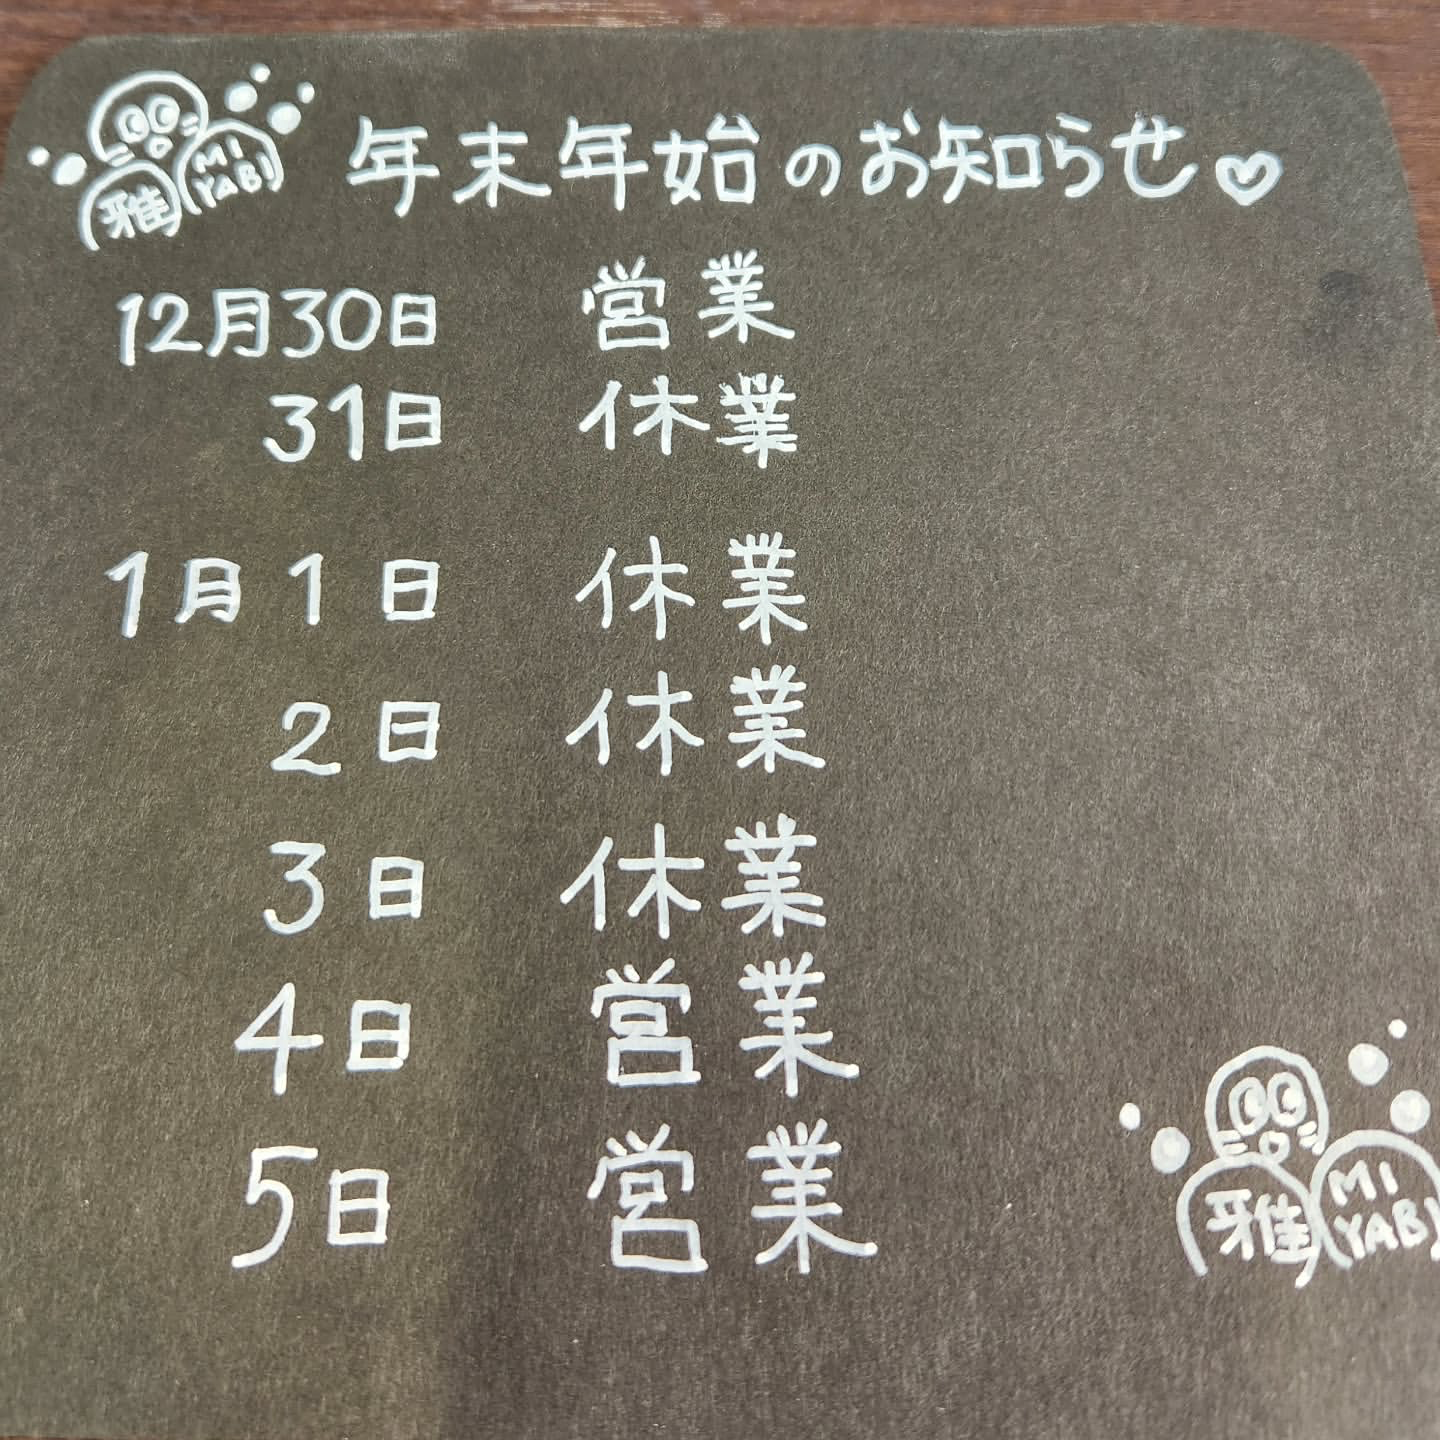 年末年始のお知らせ♡
雅 MI YABI
12月30日 営業
31日 休業
1月1日 休業
2日 休業
3日 休業
4日 営業
5日 営業
雅 MI YABI